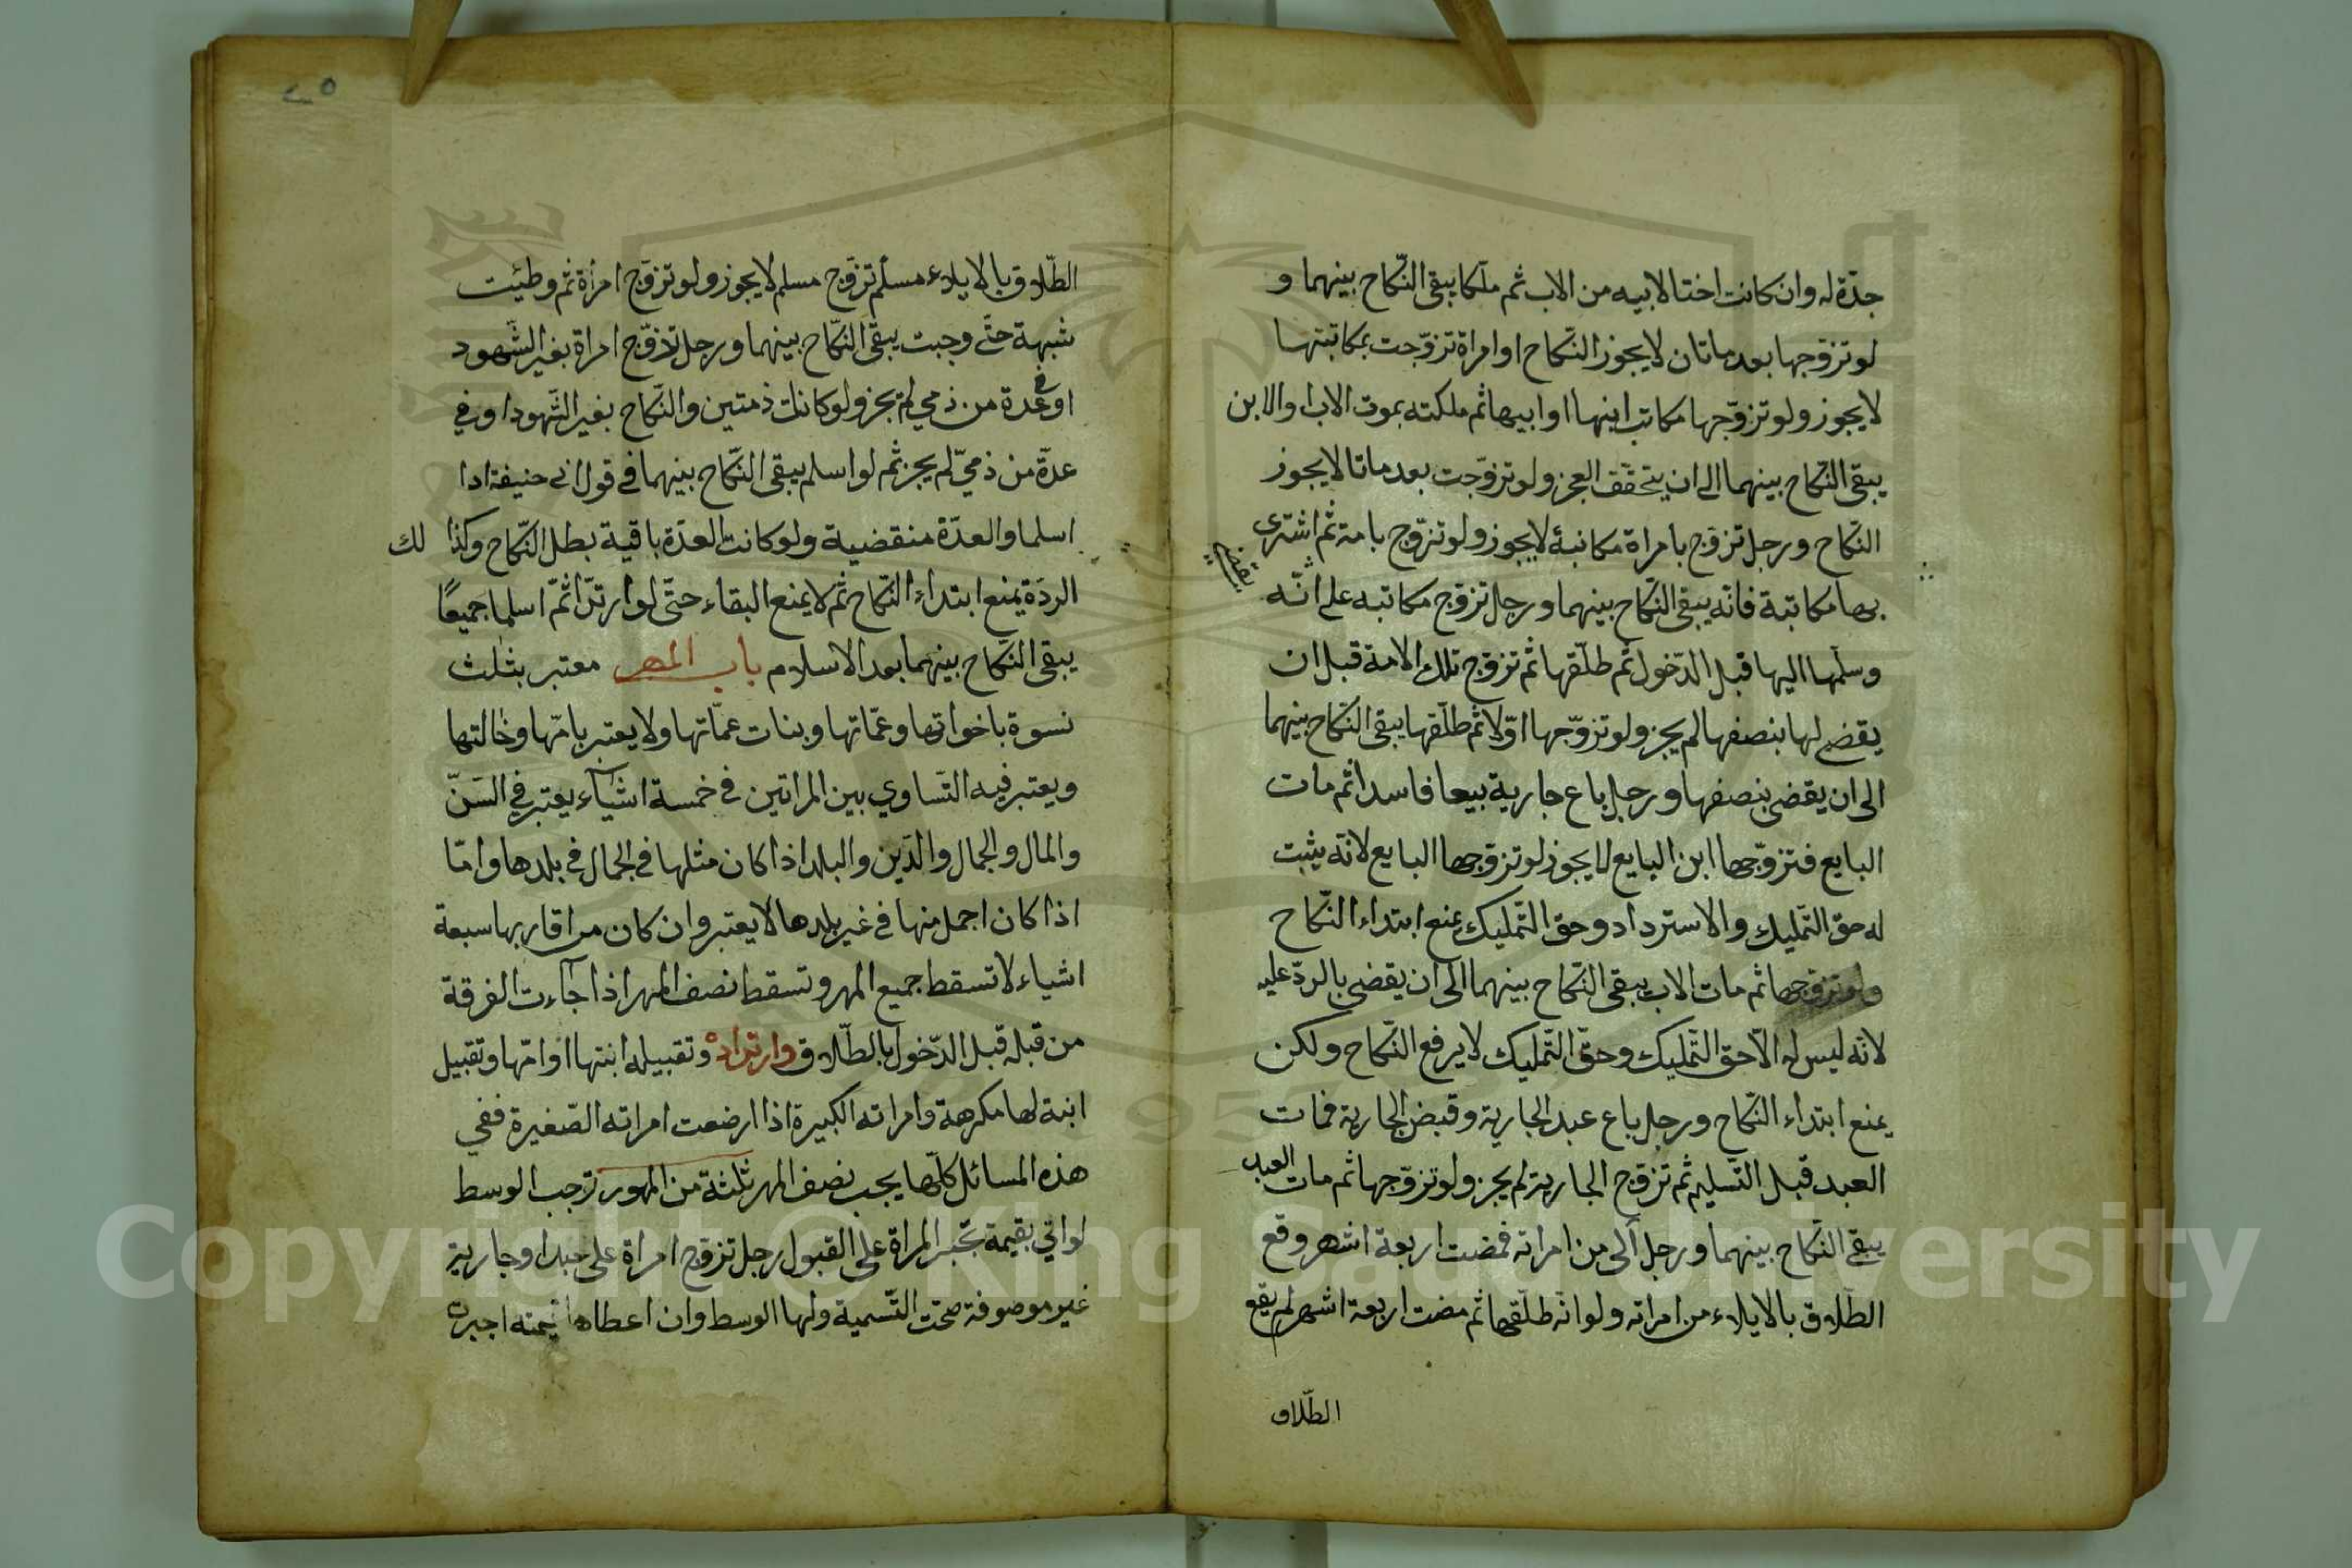 جدّة له وان كانت اختا لابيه من الاب ثم ملكا يبقى النّكاح بينهما و
لو تزوّجها بعد ماتان لا يجوز النّكاح او امراة تزوّجت بمكاتبتها
لا يجوز ولو تزوّجها مكاتب ابنها او ابيها ثم ملكته بموت الاب او الابن
يبقى النّكاح بينهما الى ان يتحقّق العجز ولو تزوّجت بعد ماتا لا يجوز
النّكاح ورجل تزوّج بامراة مكاتبة لا يجوز ولو تزوّج بامته ثم اشترى
بها مكاتبة فانّه يبقى النّكاح بينهما ورجل تزوّج مكاتبه على انّه
وسلّمها اليها قبل الدّخول ثم طلّقها ثم تزوّج تلك الامة قبل ان
يقضي لها بنصفها لم يجز ولو تزوّجها اوّلا ثم طلّقها يبقى النّكاح بينهما
الى ان يقضى بنصفها ورجل باع جارية بيعا فاسدا ثم مات
البايع فتزوّجها ابن البايع لا يجوز لو تزوّجها البايع لانّه يثبت
له حق التّمليك والاسترداد وحق التّمليك يمنع ابتداء النّكاح
ولو تزوّجها ثم مات الاب يبقى النّكاح بينهما الى ان يقضى بالردّ عليه
لانّه ليس له الّا حق التّمليك وحقّ التّمليك لا يرفع النّكاح ولكن
يمنع ابتداء النّكاح ورجل باع عبد الجارية وقبض الجارية فمات
العبد قبل التّسليم ثم تزوّج الجارية لم يجز ولو تزوّجها ثم مات العبد
يبقى النّكاح بينهما ورجل آلى من امراته فمضت اربعة اشهر وقع
الطّلاق بالايلاء من امراته ولو انّه طلّقها ثم مضت اربعة اشهر لم يقع
الطّلاق
٢٥
الطّلاق بالايلاء مسلم تزوّج مسلم لا يجوز ولو تزوّج امرأة ثم وطئت
شبهة حتّى وجبت يبقى النّكاح بينهما ورجل تزوّج امراة بغير الشّهود
او في عدة من ذمي لم يجز ولو كانت ذمتين والنّكاح بغير الشّهود او في
عدّة من ذميّ لم يجز ثم لو اسلم يبقى النّكاح بينهما في قول ابى حنيفة اذا
اسلما والعدّة منقضية ولو كانت العدّة باقية بطل النّكاح وكذا لك
الردّة يمنع ابتداء النّكاح ثم لا يمنع البقاء حتّى لو ارتدّا ثمّ اسلما جميعًا
يبقى النّكاح بينهما بعد الاسلام باب المهر معتبر بثلث
نسوة باخواتها وعمّاتها وبنات عمّاتها ولا يعتبر بامّها وخالتها
ويعتبر فيه التّساوي بين المراتين في خمسة اشياء يعتبر في السّنّ
والمال والجمال والدّين والبلد اذا كان مثلها في الجمال في بلدها وامّا
اذا كان اجمل منها في غير بلدها لا يعتبر وان كان من اقاربها سبعة
اشياء لا تسقط جميع المهر وتسقط نصف المهر اذا جاءت الفرقة
من قبله قبل الدّخول بالطّلاق وارتداده وتقبيله ابنتها او امّها وتقبيل
ابنه لها مكرهة وامراته الكبيرة اذا ارضعت امراته الصّغيرة ففي
هذه المسائل كلّها يجب نصف المهر ثلثة من المهور ترجب الوسط
لو اتي بقيمة تجبر المراة على القبول رجل تزوّج امراة على عبد او جارية
غير موصوفة صحت التّسمية ولها الوسط وان اعطاها قيمته اجبره
Copyright © King Saud University